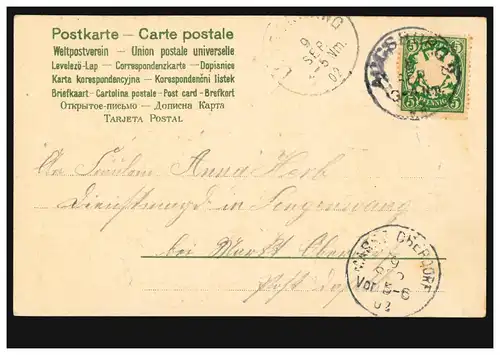 Postkarte – Carte postale
Weltpostverein – Union postale universelle
Levelező-Lap – Correspondenzkarte – Dopisnice
Karta korespondencyjna – Korespondenční lístek
Briefkaart – Cartolina postale – Post card – Brefkort
Открытое письмо – Дописна Карта
Tarjeta Postal
9
SEP
02
Vm.
AUGSBURG
5 5
PFENNIG
5 5
An Fräulein Anna Herb
Dienstmagd in Lengenwang
bei Markt Ober
Post
MARKT OBERDORF
9
Vor 5-6
02